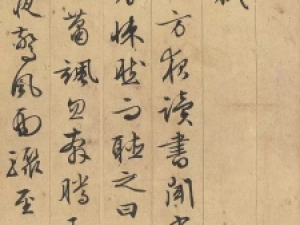 方夜讀書聞
悚然而聽之曰
蕭颯忽奔騰
夜驚風雨驟至